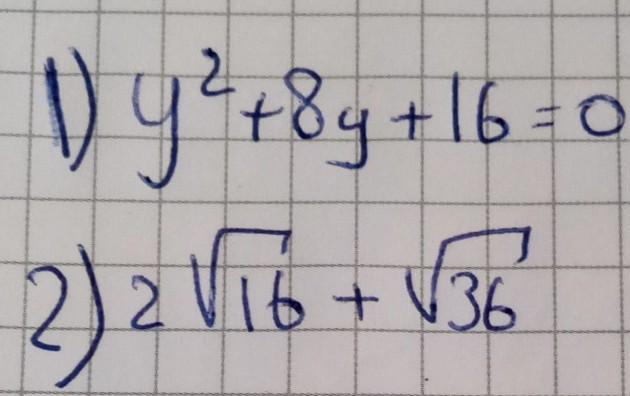 1) y² + 8y + 16 = 0
2) 2√16 + √36